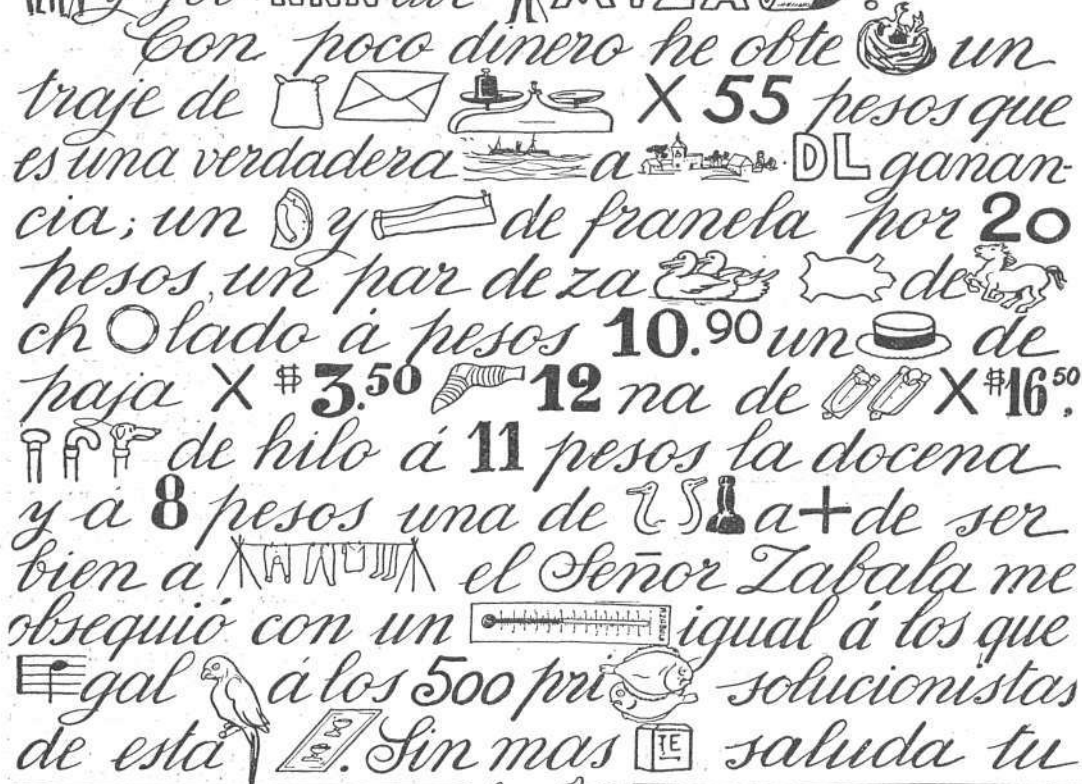 y
Con poco dinero he obte un
traje de X 55 pesos que
es una verdadera a DL ganan-
cia; un y de franela por 20
pesos, un par de za de
ch lado á pesos 10.90 un de
paja X $3.50 12 na de X $16.50,
de hilo á 11 pesos la docena
y á 8 pesos una de a+de ser
bien a el Señor Zabala me
obsequió con un igual á los que
gal á los 500 pri solucionistas
de esta . Sin mas TE saluda tu